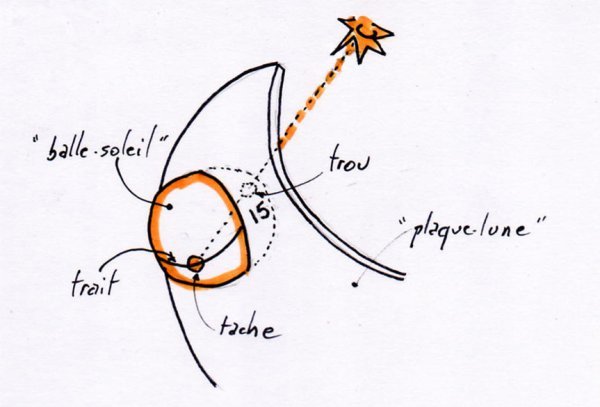 "balle-soleil"
trou
15
"plaque-lune"
trait
tache